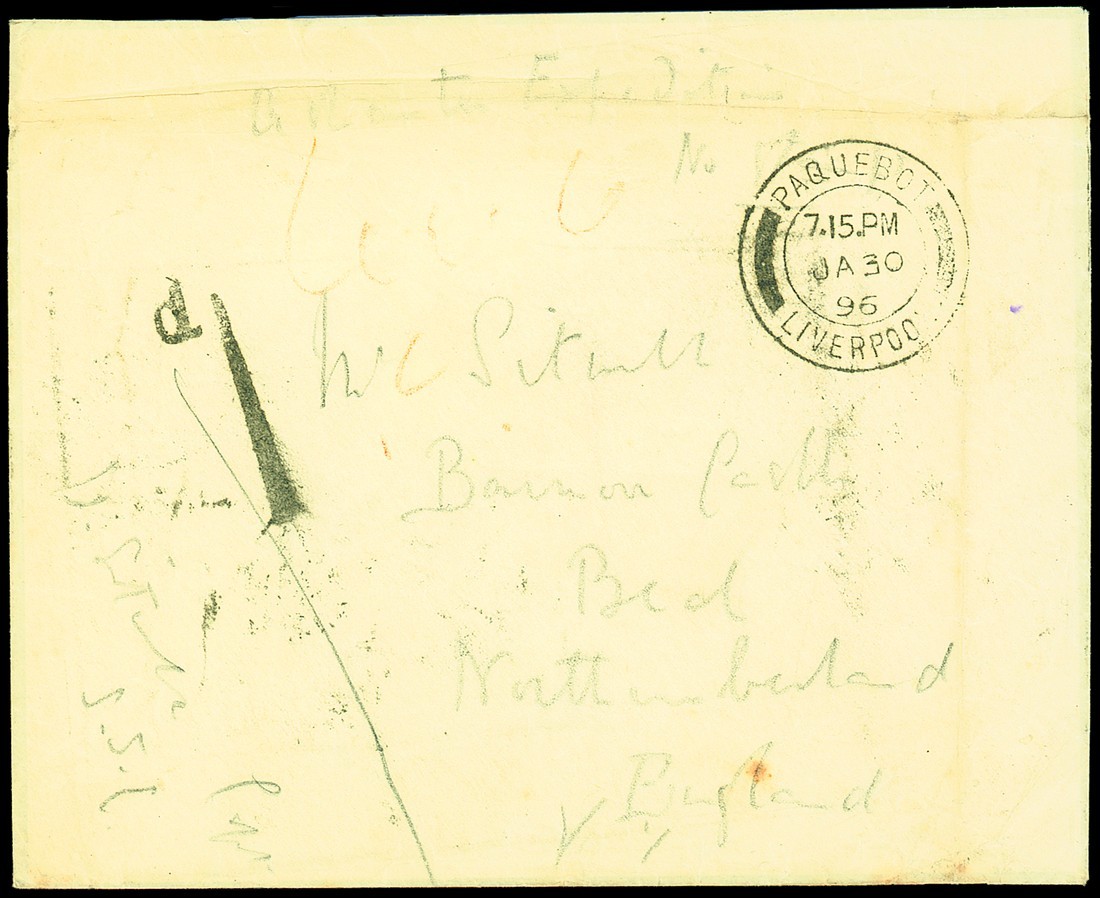 Ashantee Expedition
No
PAQUEBOT
7.15.PM
JA 30
96
LIVERPOO
1d
Mrs Sitwell
Barmoor Castle
Beal
Northumberland
England